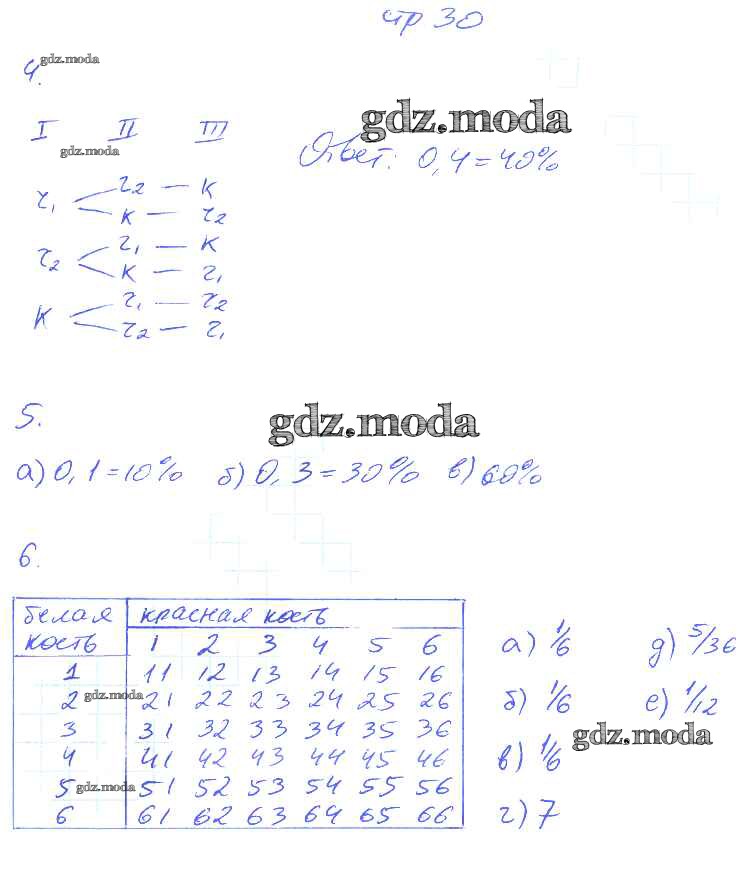 стр 30
4.
gdz.moda
I II III
gdz.moda
gdz.moda
Ответ: 0,4=40%
г₁ г₂ — к
к — г₂
г₂ г₁ — к
к — г₁
к г₁ — г₂
г₂ — г₁
5.
gdz.moda
а) 0,1=10% б) 0,3=30% в) 60%
6.
белая кость красная кость
1 2 3 4 5 6
1 11 12 13 14 15 16
2 gdz.moda 21 22 23 24 25 26
3 31 32 33 34 35 36
4 41 42 43 44 45 46
5 gdz.moda 51 52 53 54 55 56
6 61 62 63 64 65 66
а) 1/6 д) 5/36
б) 1/6 е) 1/12
gdz.moda
в) 1/6
г) 7